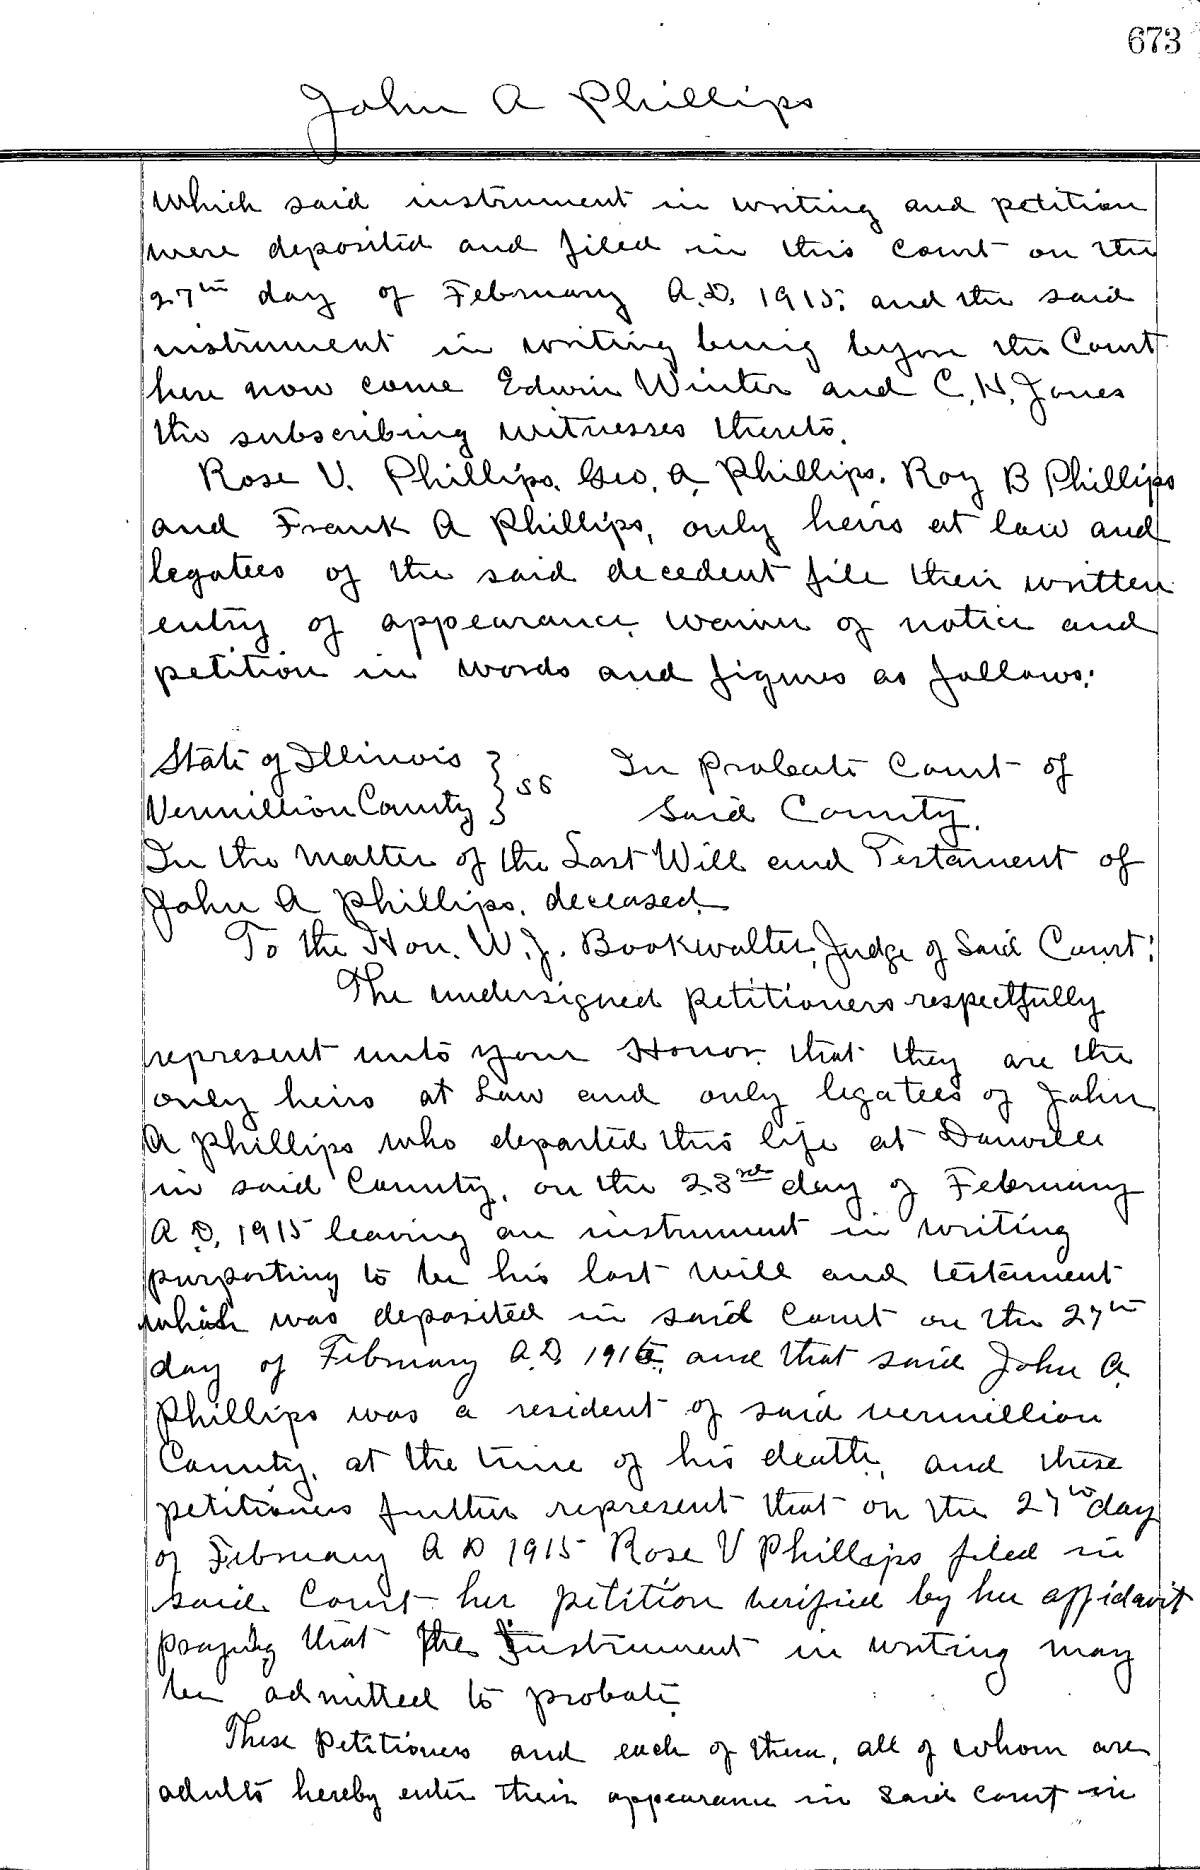 673
John A Phillips
which said instrument in writing and petition
were deposited and filed in this Court on the
27th day of February A.D. 1915. and the said
instrument in writing being before the Court
here now come Edwin Winter and C. H. Jones
the subscribing witnesses thereto.
Rose V. Phillips. Geo. A. Phillips. Roy B Phillips
and Frank A Phillips, only heirs at law and
legatees of the said decedent file their written
entry of appearance, waiver of notice and
petition in words and figures as follows:
State of Illinois } ss In Probate Court of
Vermillion County } Said County.
In the Matter of the Last Will and Testament of
John A Phillips, deceased.
To the Hon. W. J. Bookwalter, Judge of Said Court:
The undersigned petitioners respectfully
represent unto your Honor. that they are the
only heirs at Law and only legatees of John
A Phillips who departed this life at Danville
in said County, on the 23rd day of February
A.D. 1915 leaving an instrument in writing
purporting to be his last will and testament
which was deposited in said Court on the 27th
day of February A.D. 1915. and that said John A.
Phillips was a resident of said Vermillion
County, at the time of his death, and these
petitioners further represent that on the 27th day
of February A D 1915 Rose V Phillips filed in
said Court her petition verified by her affidavit
praying that the Instrument in writing may
be admitted to probate.
These Petitioners and each of them, all of whom are
adults hereby enter their appearance in said Court in